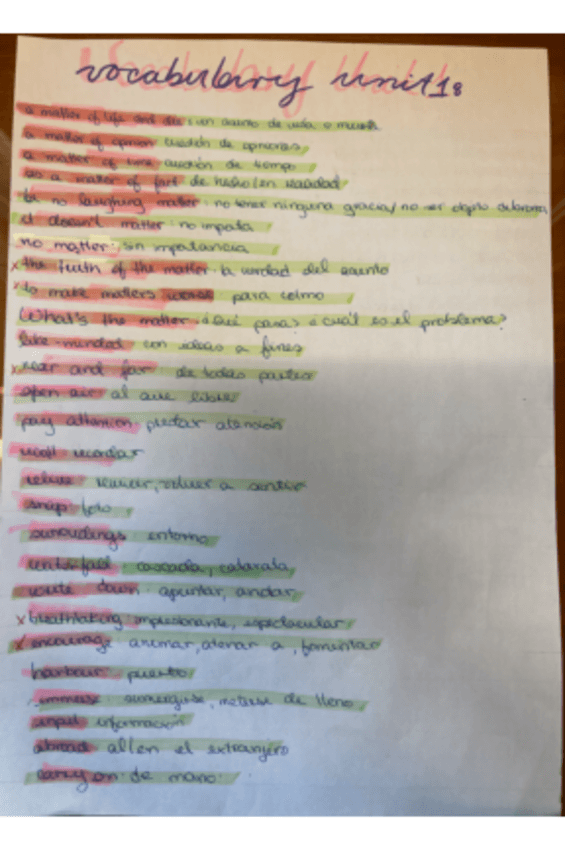 vocabulary unit 1
a matter of life and die: un asunto de vida o muerte
a matter of opinion cuestión de opiniones
a matter of time cuestión de tiempo
as a matter of fact de hecho/en realidad
be no laughing matter: no tener ninguna gracia/ no ser objeto de broma
it doesn't matter: no importa
no matter: sin importancia
x the truth of the matter: la verdad del asunto
x to make matters worse para colmo
What's the matter ¿Qué pasa? ¿cuál es el problema?
like-minded con ideas a fines
x near and far de todas partes
open air al aire libre
pay attention prestar atención
recall recordar
relive revivir, volver a sentir
snap foto
surroudings entorno
waterfall cascada, catarata
write down apuntar, anotar
x breathtaking impresionante, espectacular
x encourage animar, alentar a, fomentar
harbour puerto
immerse sumergirse, meterse de lleno
input información
abroad all en el extranjero
carry on de mano